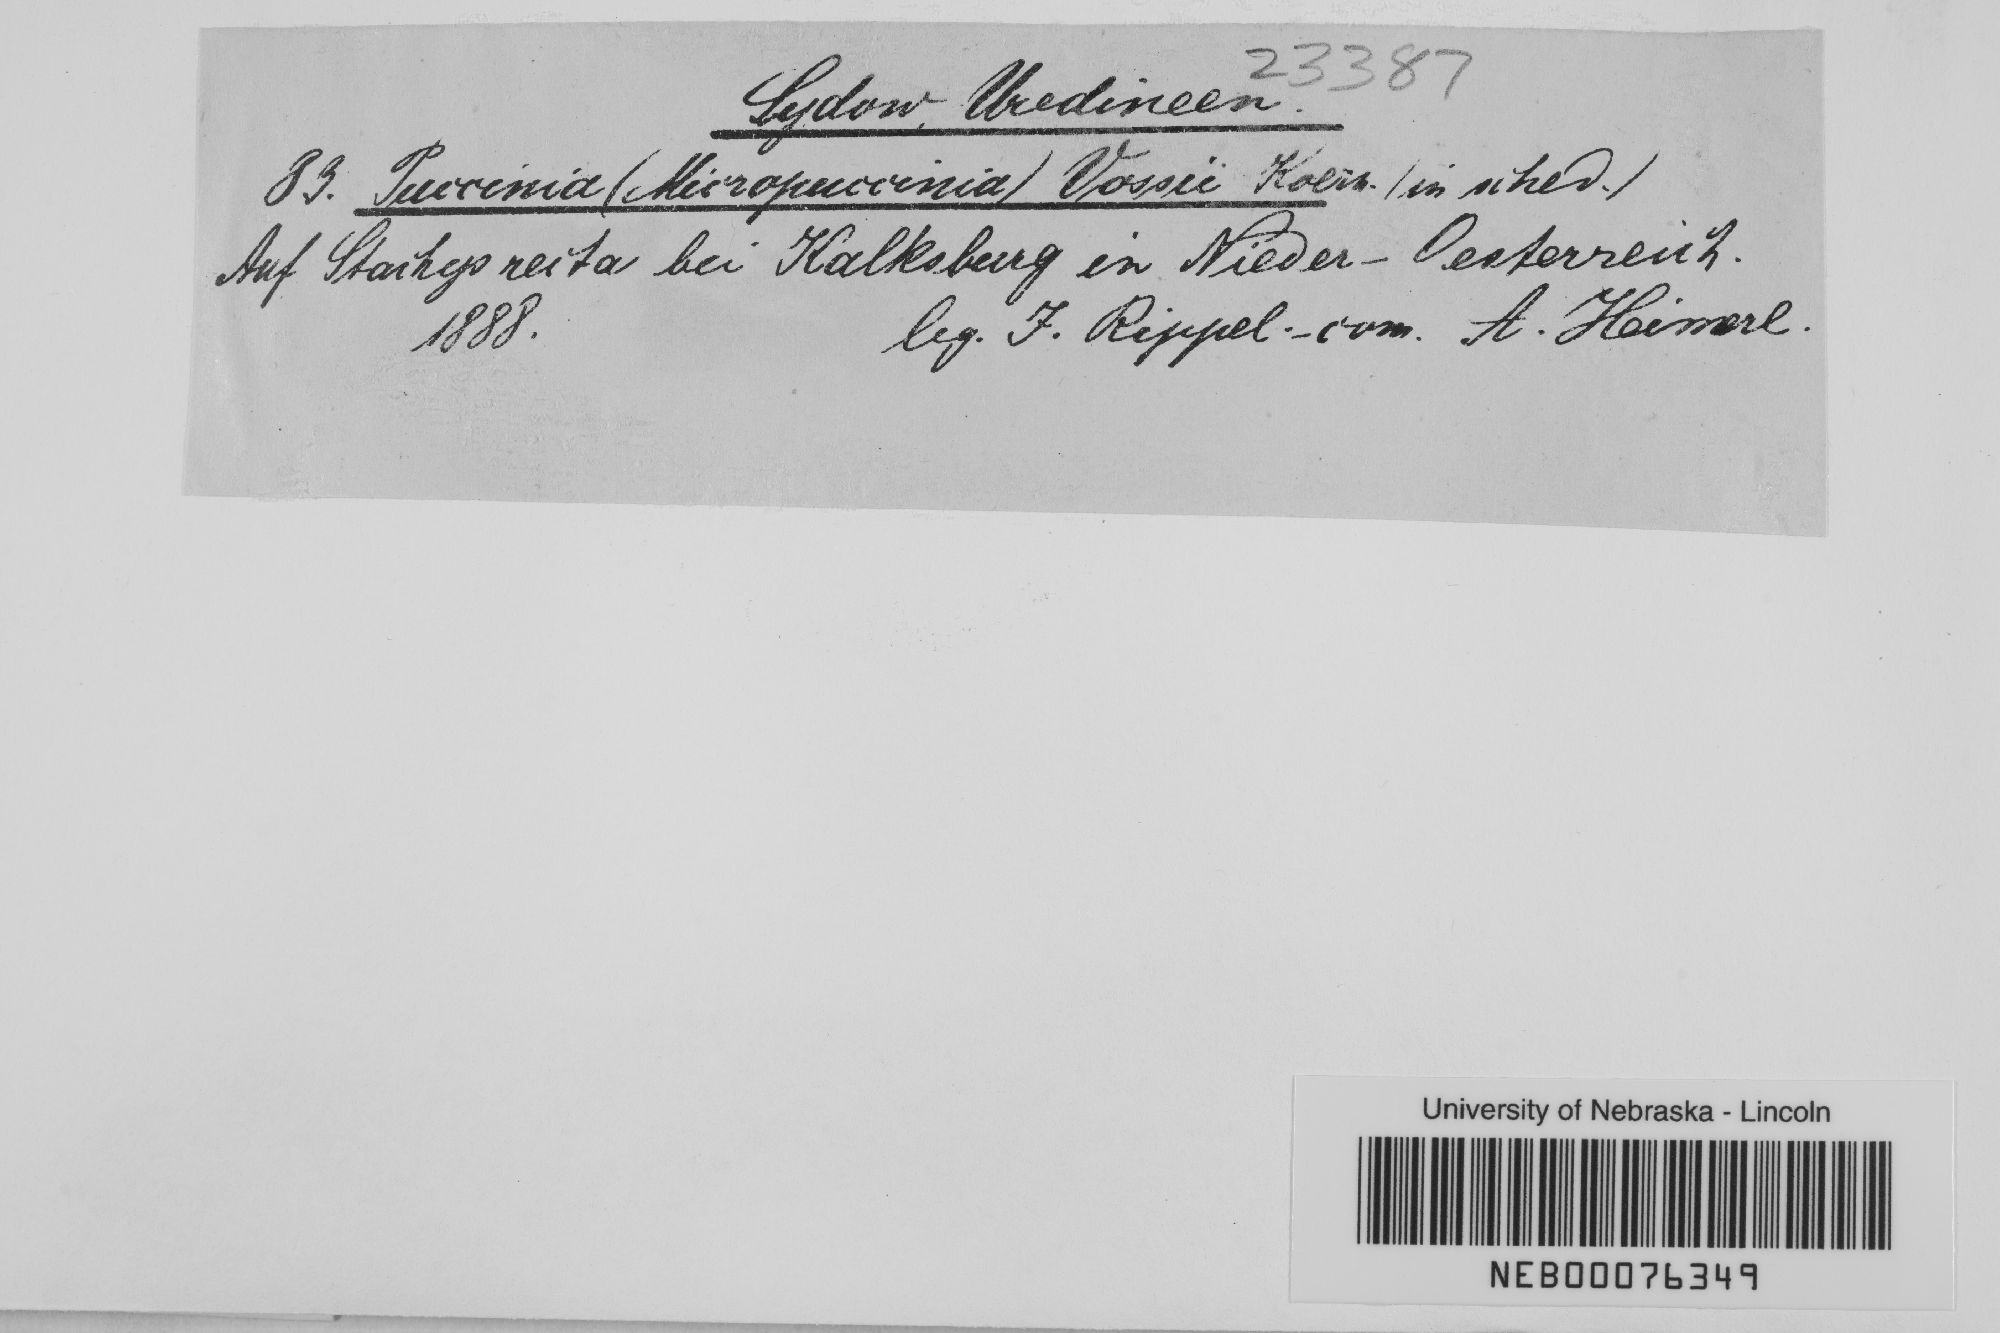 23387
Sydow, Uredineen.
83. Puccinia (Micropuccinia) Vossii Koern. (in sched.)
Auf Stachys recta bei Kalksburg in Nieder-Oesterreich.
1888. leg. J. Rippel.-com. A. Heimerl.
University of Nebraska - Lincoln
NEB00076349